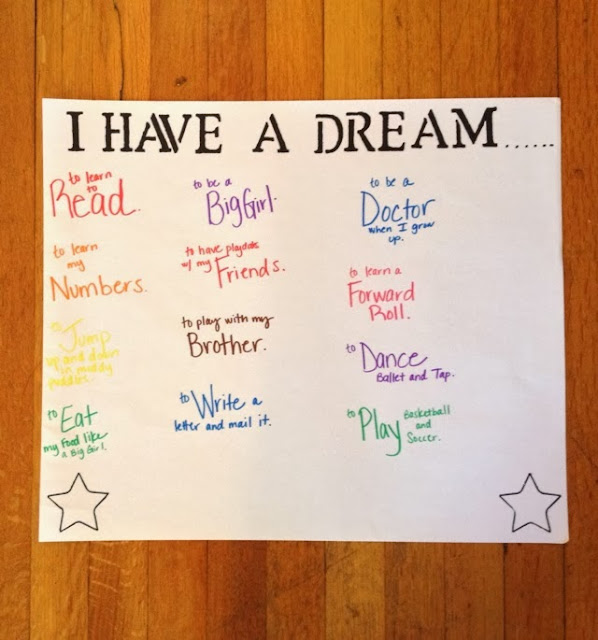 I HAVE A DREAM......
to learn
to
Read.
to learn
my
Numbers.
to
Jump
up and down
in muddy
puddles.
to
Eat
my food like
a Big Girl.
to be a
Big Girl.
to have playdates
w/ my Friends.
to play with my
Brother.
to Write a
letter and mail it.
to be a
Doctor
when I grow
up.
to learn a
Forward
Roll.
to
Dance
Ballet and Tap.
to Play Basketball
and
Soccer.